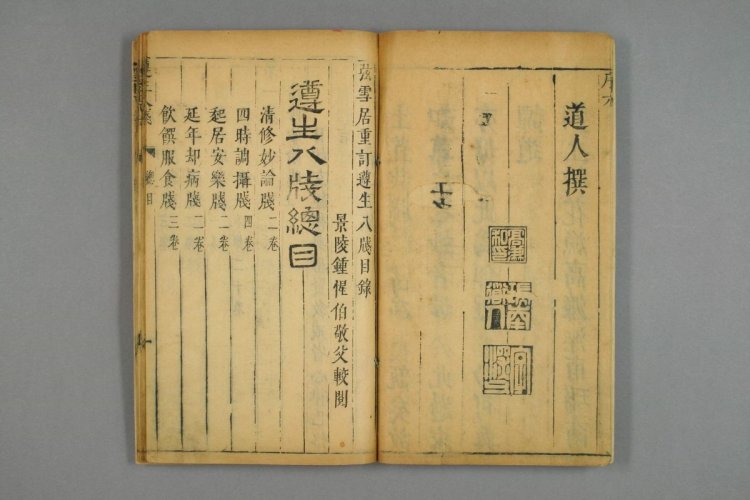 道人撰
弦雪居重訂遵生八牋目錄
景陵鍾惺伯敬父較閱
遵生八牋總目
清修妙論牋二卷
四時調攝牋四卷
起居安樂牋二卷
延年却病牋二卷
飲饌服食牋三卷